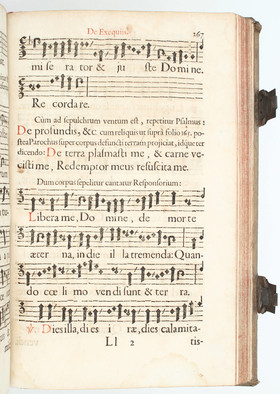 De Exequijs. 267
mi se ra tor & ju ste Do mi ne.
Re corda re.
Cùm ad sepulchrum ventum est, repetitur Psalmus:
De profundis, &c. cum reliquis ut suprà folio 165. po-
stea Parochus super corpus defuncti terram projiciat, idque ter
dicendo: De terra plasmasti me, & carne ve-
cisti me, Redemptor meus resuscita me.
Dum corpus sepelitur cantatur Responsorium:
Libera me, Do mine, de morte
æter na, in die il la tremenda: Quan-
do cœ li mo ven di sunt & ter ra.
℣. Dies illa, di es i ræ, dies calamita-
Ll 2 tis-